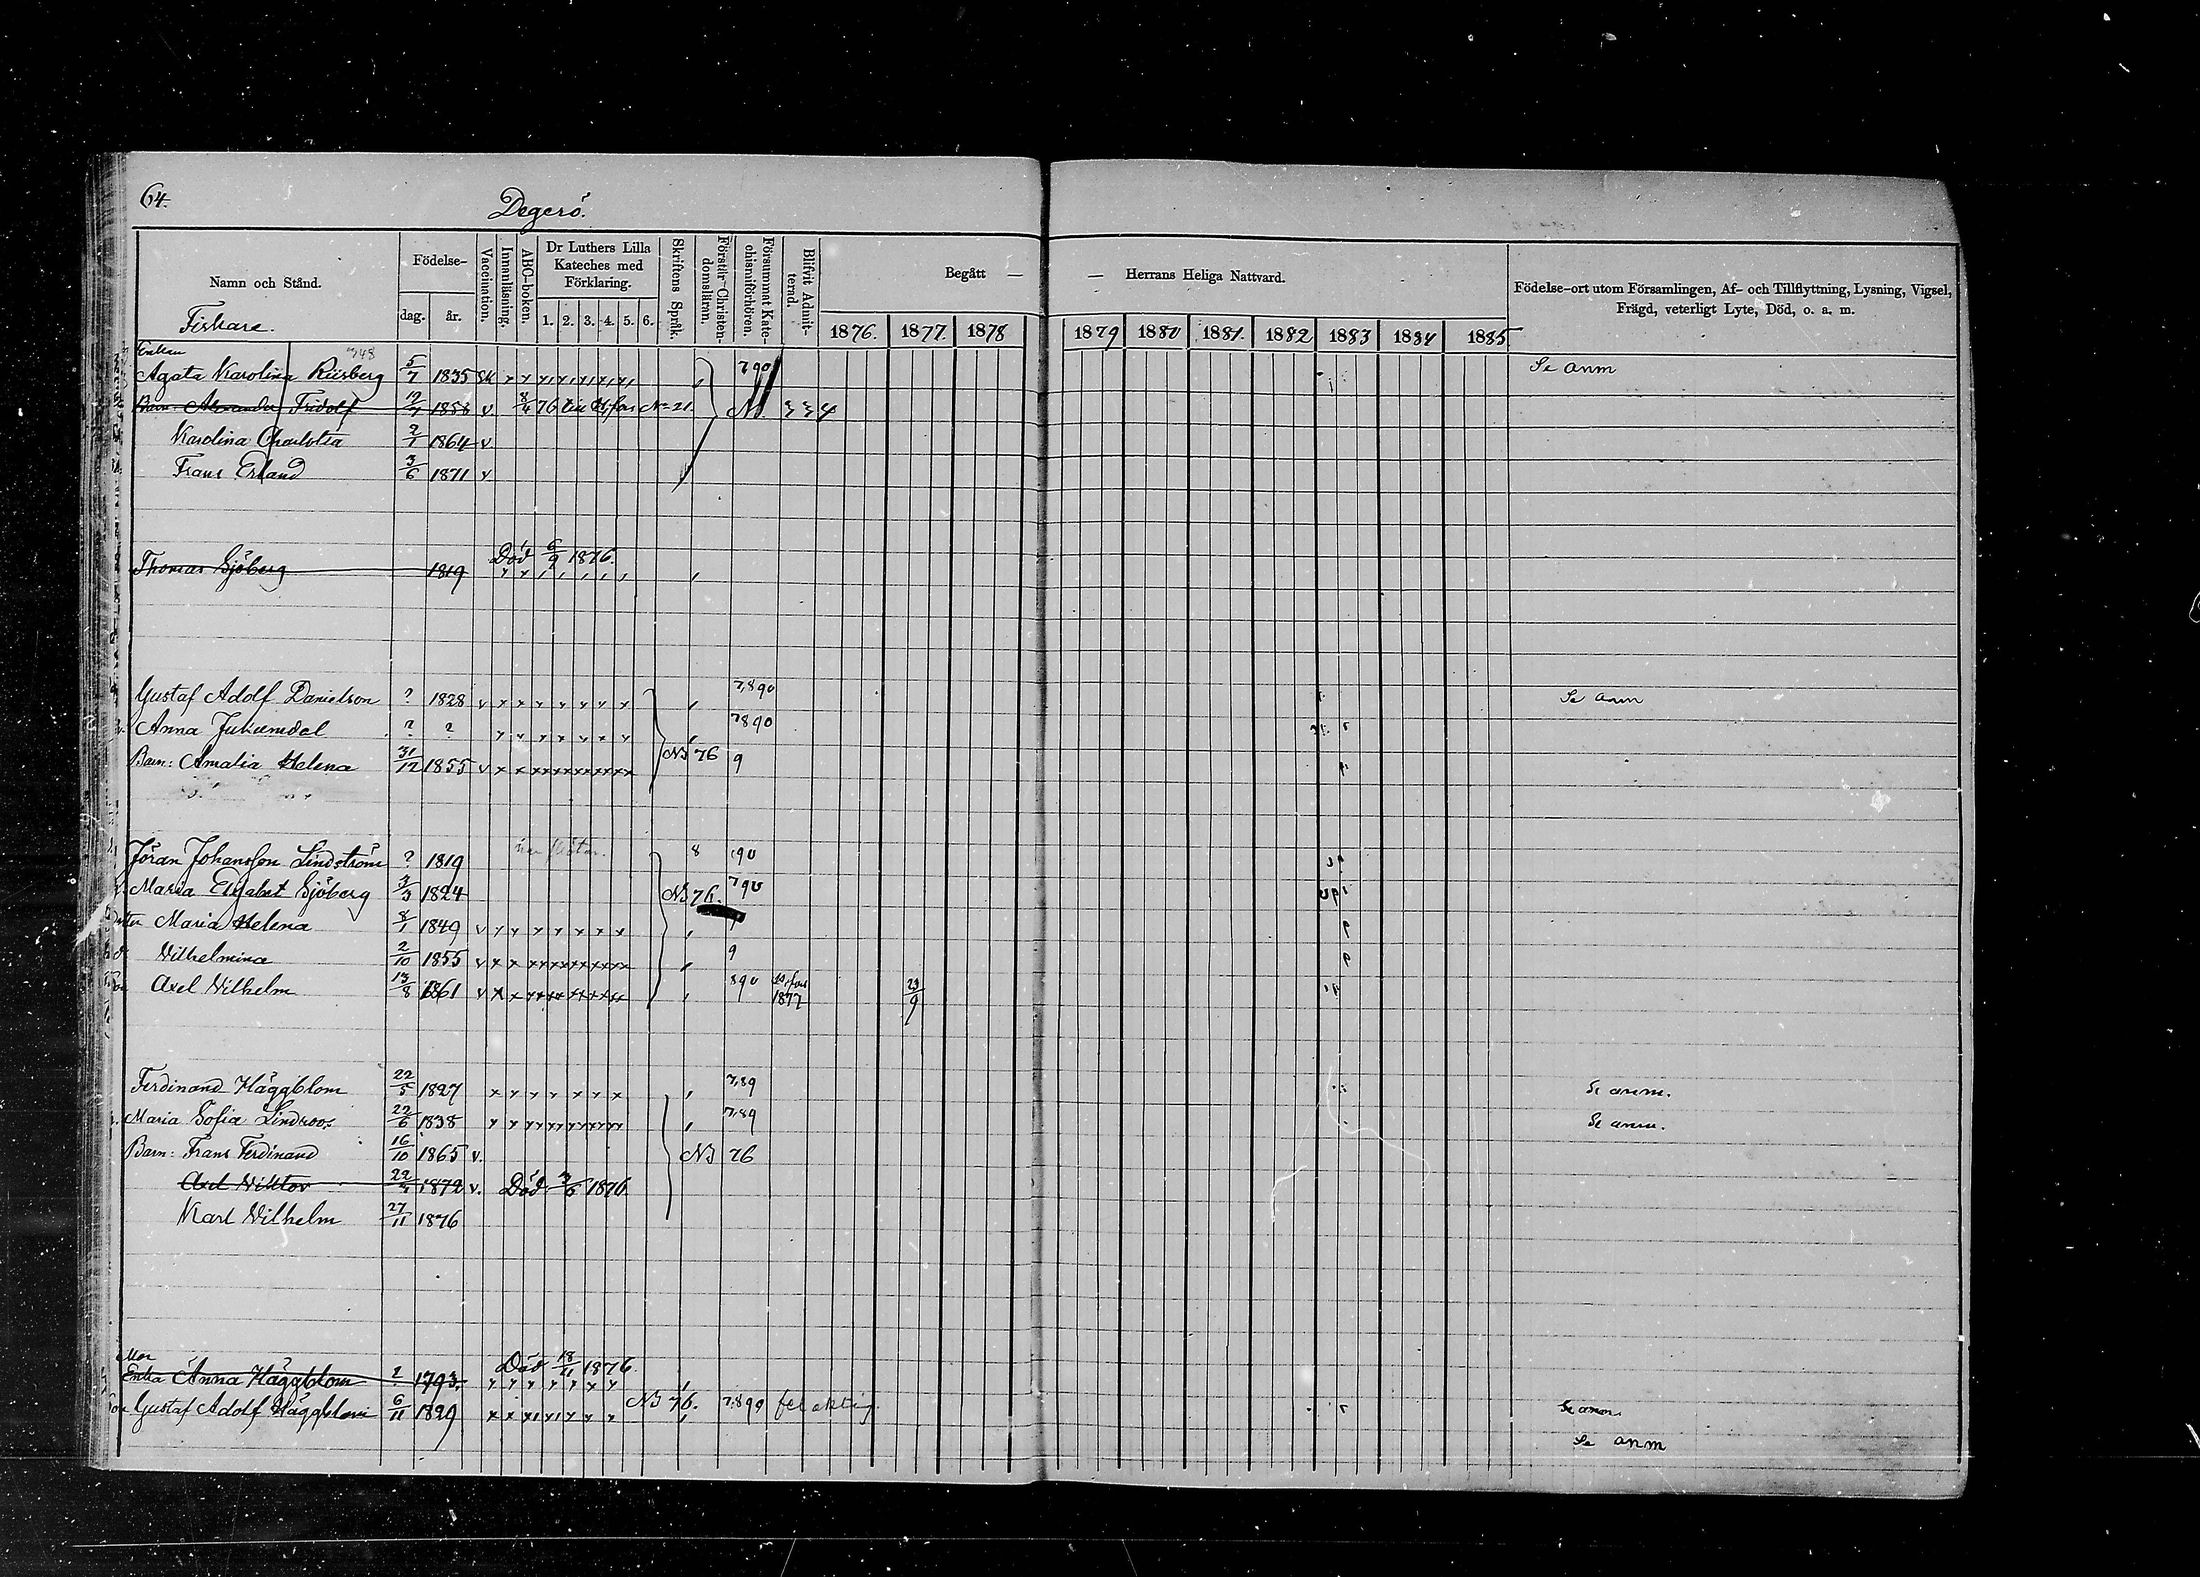 64.
Degerö.
Namn och Stånd.
Fiskare.
Födelse-
dag. år.
Vaccination.
Innanläsning.
ABC-boken.
Dr Luthers Lilla Kateches med Förklaring.
1. 2. 3. 4. 5. 6.
Skriftens Språk.
Förstår Christendomsläran.
Försummat Katechismiförhören.
Blifvit Admitterad.
Begått — — Herrans Heliga Nattvard.
1876. 1877. 1878 1879 1880 1881. 1882 1883 1884 1885
Födelse-ort utom Församlingen, Af- och Tillflyttning, Lysning, Vigsel,
Frägd, veterligt Lyte, Död, o. a. m.
Enkan 348
Agata Karolina 5/7 1835 790 Se anm
Barn: Alexander Fridolf 1858 v 8/4 76 till H:fors No 21
Karolina Charlotta 2/1 1864 v
Frans Erland 3/6 1871 v
Död 6/9 1876.
Thomas Sjöberg 1819
Gustaf Adolf Danielson ? 1828 v 7,890 Se anm
Anna ? ? 7890
Barn: Amalia Helena 31/12 1855 v NB 76 9
Jöran Johansson Lindström ? 1819 8 90
Maria Elisabet Sjöberg 3/3 1824 NB 76. 790
Maria Helena 8/1 1849 v
Vilhelmina 2/10 1855 v 9
Axel Vilhelm 13/8 1861 v 890 H:fors 1877 23/9
Ferdinand Häggblom 22/5 1827 7,89 Se anm.
Maria Sofia Lindroos 22/6 1838 7,89 Se anm.
Barn: Frans Ferdinand 16/10 1865 v. NB 76
Axel Viktor 1872 v. Död 3/6 1876
Karl Vilhelm 27/11 1876
Mor
Enka Anna Häggblom ? 1793. Död 18/11 1876.
Gustaf Adolf Häggblom 6/11 1829 NB 76. 7,890 felaktig. Se anm.
Se anm